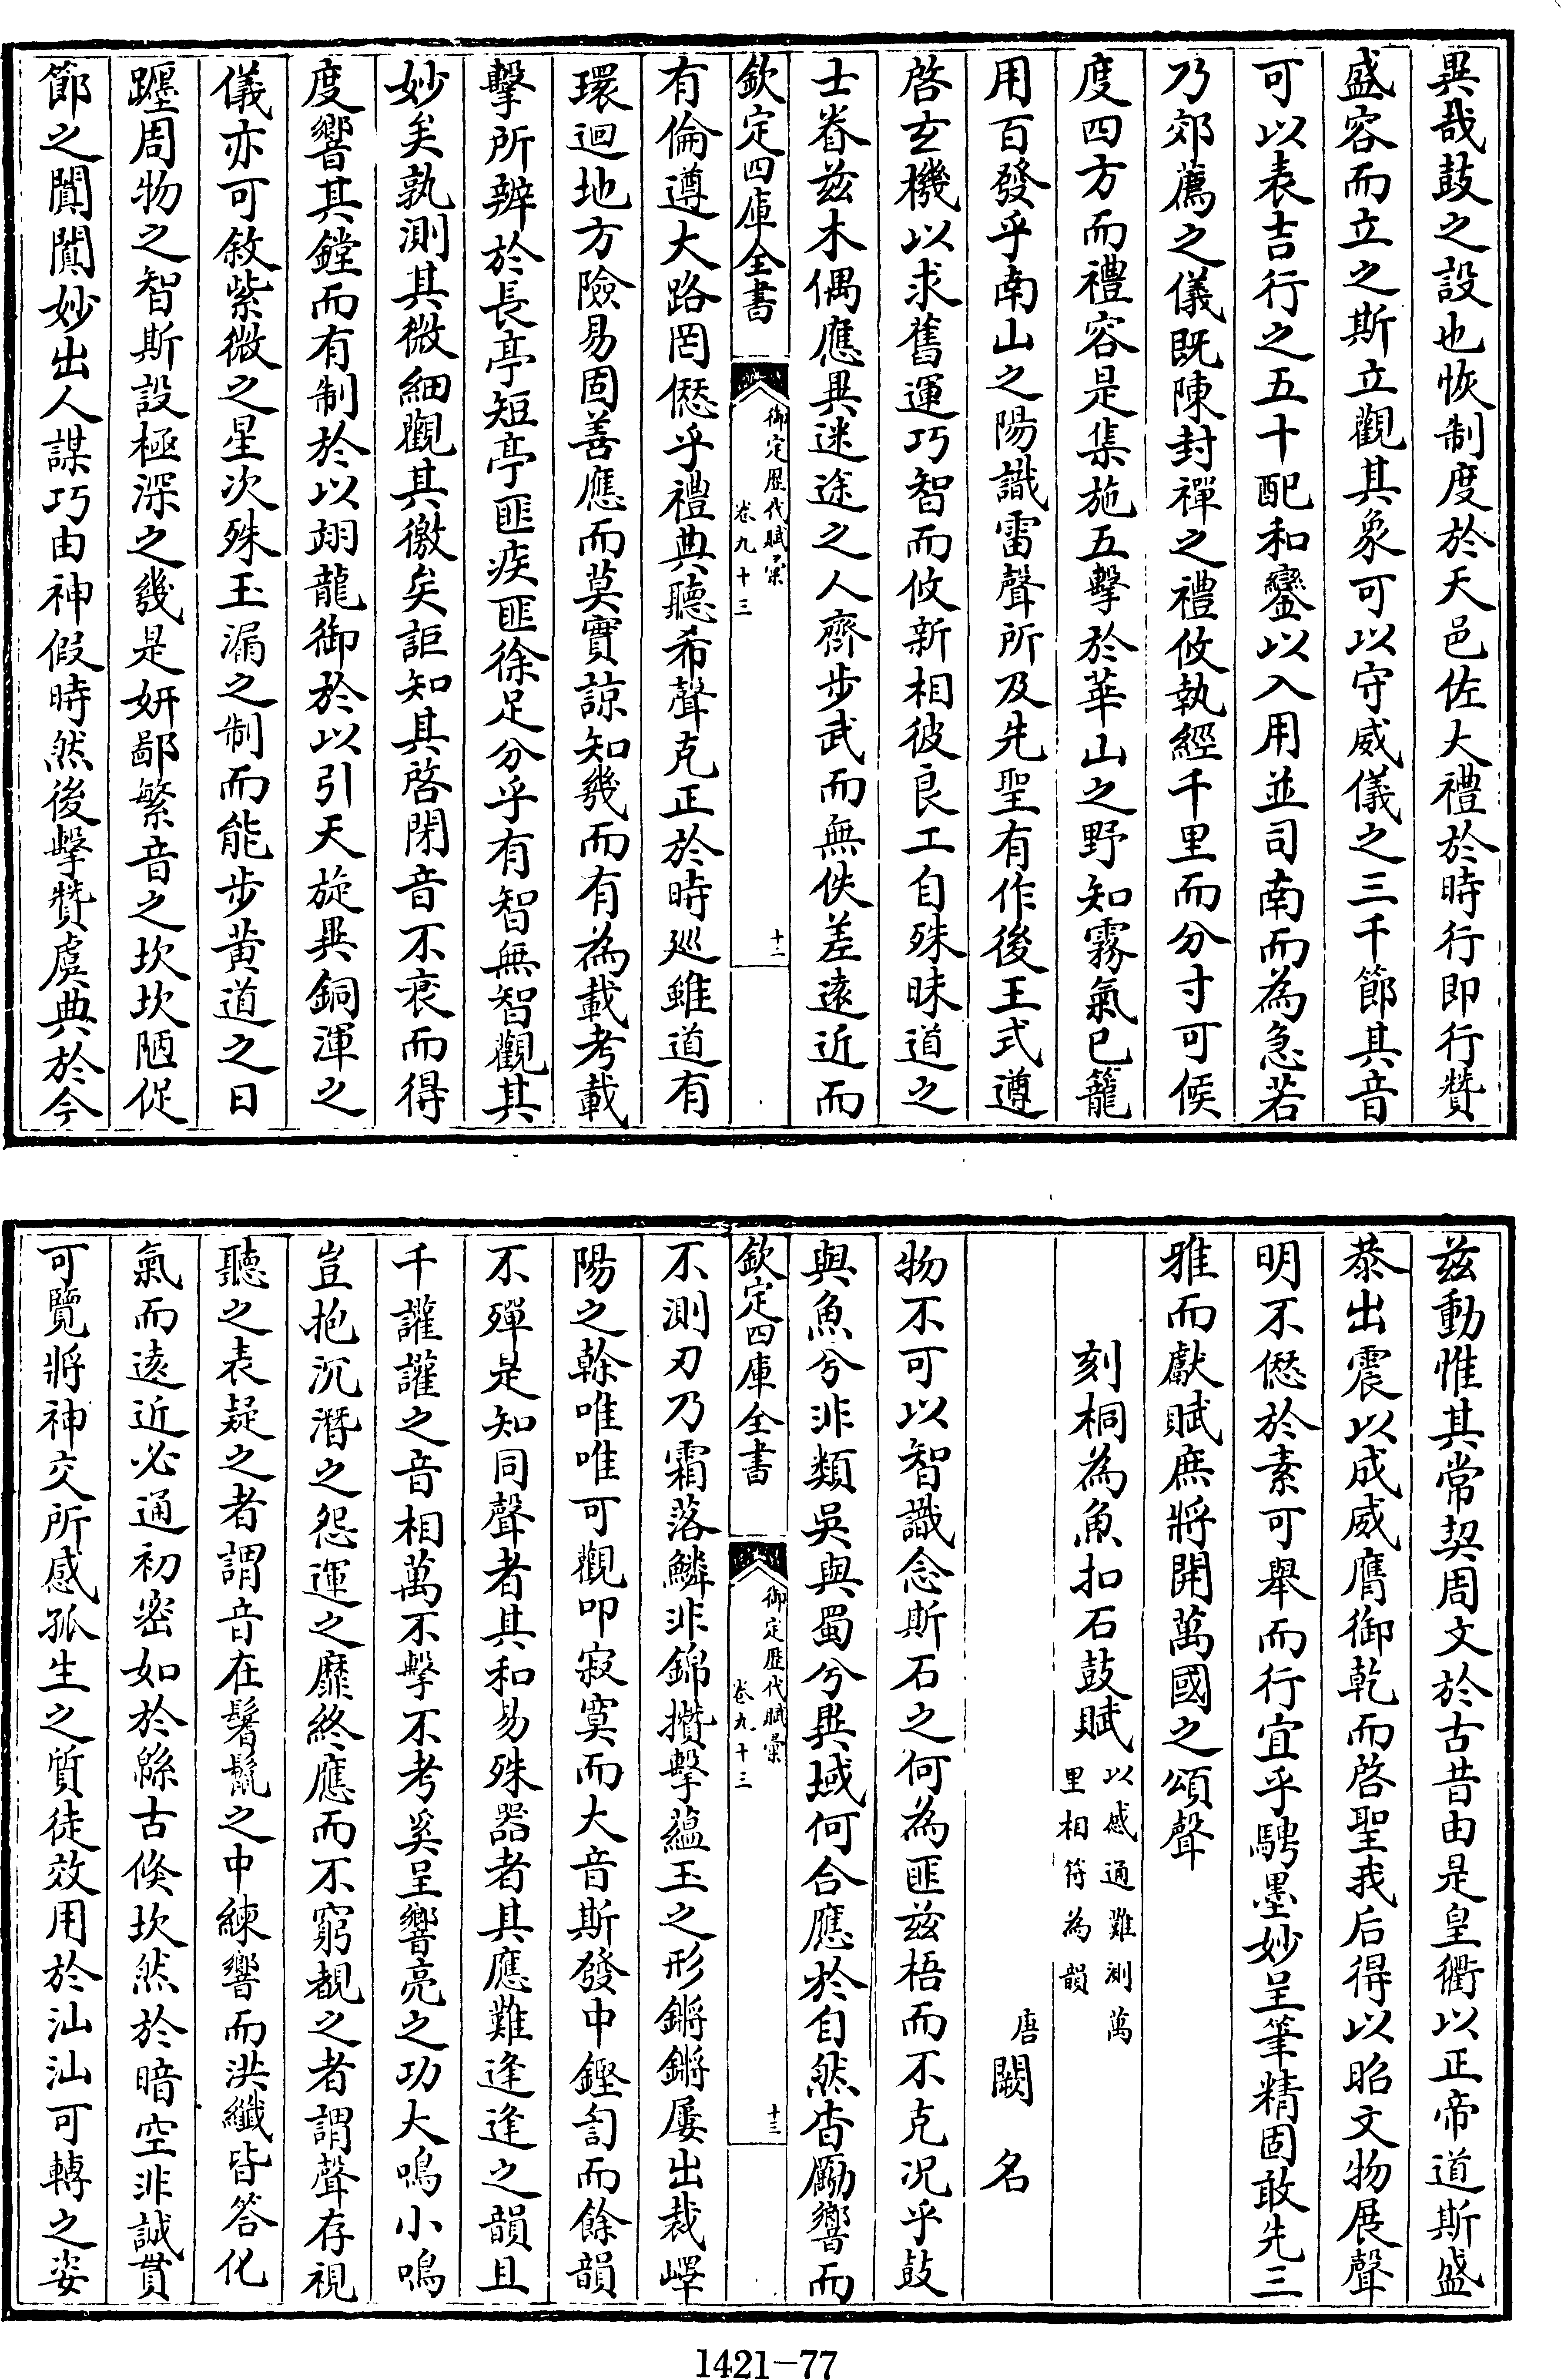 異哉鼓之設也恢制度於天邑佐大禮於時行即行贊
盛容而立之斯立觀其象可以守威儀之三千節其音
可以表吉行之五十配和鑾以入用並司南而為急若
乃郊薦之儀既陳封禪之禮攸執經千里而分寸可候
度四方而禮容是集施五擊於華山之野知霧氣已籠
用百發乎南山之陽識雷聲所及先聖有作後王式遵
啓玄機以求舊運巧智而攸新相彼良工自殊昧道之
士眷兹木偶應異迷途之人齊步武而無佚差遠近而
欽定四庫全書
御定歷代賦彙
卷九十三
十二
有倫遵大路罔愆乎禮典聽希聲克正於時廵雖道有
環迴地方險易固善應而莫實諒知幾而有為載考載
擊所辨於長亭短亭匪疾匪徐足分乎有智無智觀其
妙矣孰測其微細觀其徼矣詎知其啓閉音不衰而得
度響其鏜而有制於以翊龍御於以引天旋異銅渾之
儀亦可敘紫微之星次殊玉漏之制而能步黄道之日
躔周物之智斯設極深之幾是妍鄙繁音之坎坎陋促
節之闐闐妙出人謀巧由神假時然後擊贊虞典於今
兹動惟其常契周文於古昔由是皇衢以正帝道斯盛
恭出震以成威膺御乾而啓聖我后得以昭文物展聲
明不愆於素可舉而行宜乎騁墨妙呈筆精固敢先三
雅而獻賦庶將開萬國之頌聲
刻桐為魚扣石鼓賦
以感通難測萬
里相符為韻
唐闕名
物不可以智識念斯石之何為匪兹梧而不克况乎鼓
與魚兮非類吳與蜀兮異域何合應於自然杳勵響而
欽定四庫全書
御定歷代賦彙
卷九十三
十三
不測刃乃霜落鱗非錦攢擊蘊玉之形鏘鏘屢出裁嶧
陽之榦唯唯可觀叩寂寞而大音斯發中鏗訇而餘韻
不殫是知同聲者其和易殊器者其應難逢逢之韻且
千讙讙之音相萬不擊不考奚呈響亮之功大鳴小鳴
豈抱沉潛之怨運之靡終應而不窮覩之者謂聲存視
聽之表疑之者謂音在鬐鬣之中練響而洪纖皆答化
氣而遠近必通初密如於緜古倏坎然於暗空非誠貫
可覽將神交所感孤生之質徒效用於汕汕可轉之姿
1421-77